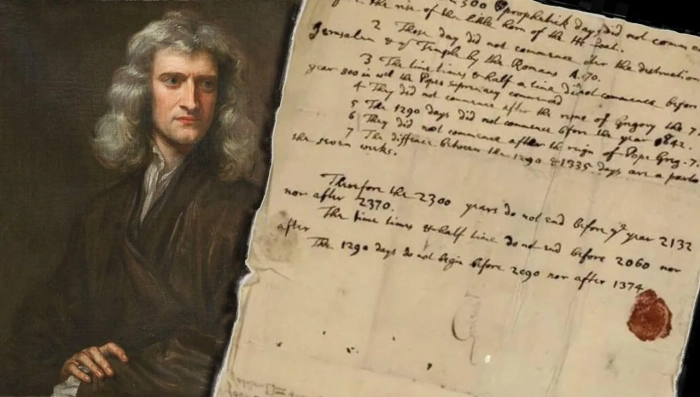 300 prophetick days did not commence
the rise of the little horn of the He Goat.
2 Those day did not commence after the destruction
Jerusalem & ye Temple by the Romans A. 70.
3 The time times & half a time did not commence before
year 800 in wch the Popes supremacy commenced
4 They did not commence after the reigne of Gregory the 7.
5 The 1290 days did not commence before the year 842.
6 They did not commence after the reigne of Pope Greg. 7.
7 The diffence between the 1290 & 1335 days are a parts
the seven weeks.
Therefore the 2300 years do not end before ye year 2132
nor after 2370.
The time times & half time do not end before 2060 nor
after
The 1290 days do not begin before 2090 nor after 1374